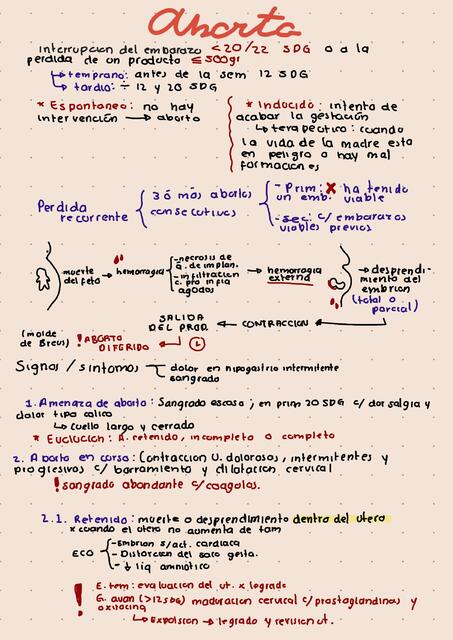 Aborto
Interrupcion del embarazo <20/22 SDG o a la
perdida de un producto ≤500gr
↳ temprano: antes de la sem 12 SDG
↳ tardio: ÷ 12 y 20 SDG
* Espontaneo: no hay
intervención → aborto
* Inducido: intento de
acabar la gestación
↳ terapeutico: cuando
la vida de la madre esta
en peligro o hay mal
formaciones
Perdida
recurrente
3 ó más abortos
consecutivos
- Prim: X ha tenido
un emb. viable
- sec: c/ embarazos
viables previos
muerte
del feto → hemorragia
- necrosis de
a. de implan.
- infiltracion
c. pro infla
agodos
→ hemorragia
externa
→ desprendi-
miento del
embrion
(total o
parcial)
SALIDA
DEL PROD. ← CONTRACCION ←
(molde
de Breus) ! ABORTO
DIFERIDO
Signos / sintomas
dolor en hipogastrio intermitente
sangrado
1. Amenaza de aborto: Sangrado escaso; en prim 20 SDG c/ dorsalgia y
dolor tipo colico
↳ cuello largo y cerrado
* Evolucion: A. retenido, incompleto o completo
2. Aborto en curso: Contraccion U. dolorosos, intermitentes y
progresivos c/ borramiento y dilatacion cervical
! sangrado abundante c/ coagulos.
2.1. Retenido: muerte o desprendimiento dentro del utero
x cuando el utero no aumenta de tam
ECO
- Embrion s/act. cardiaca
- Distorcion del saco gesta.
- ↓ liq amniotico
! E. tem: evaluacion del ut. x legrado
G. avan (>12SDG) maduracion cervical c/ prostaglandinas y
oxitocina
↳ Expulsion → legrado y revision ut.